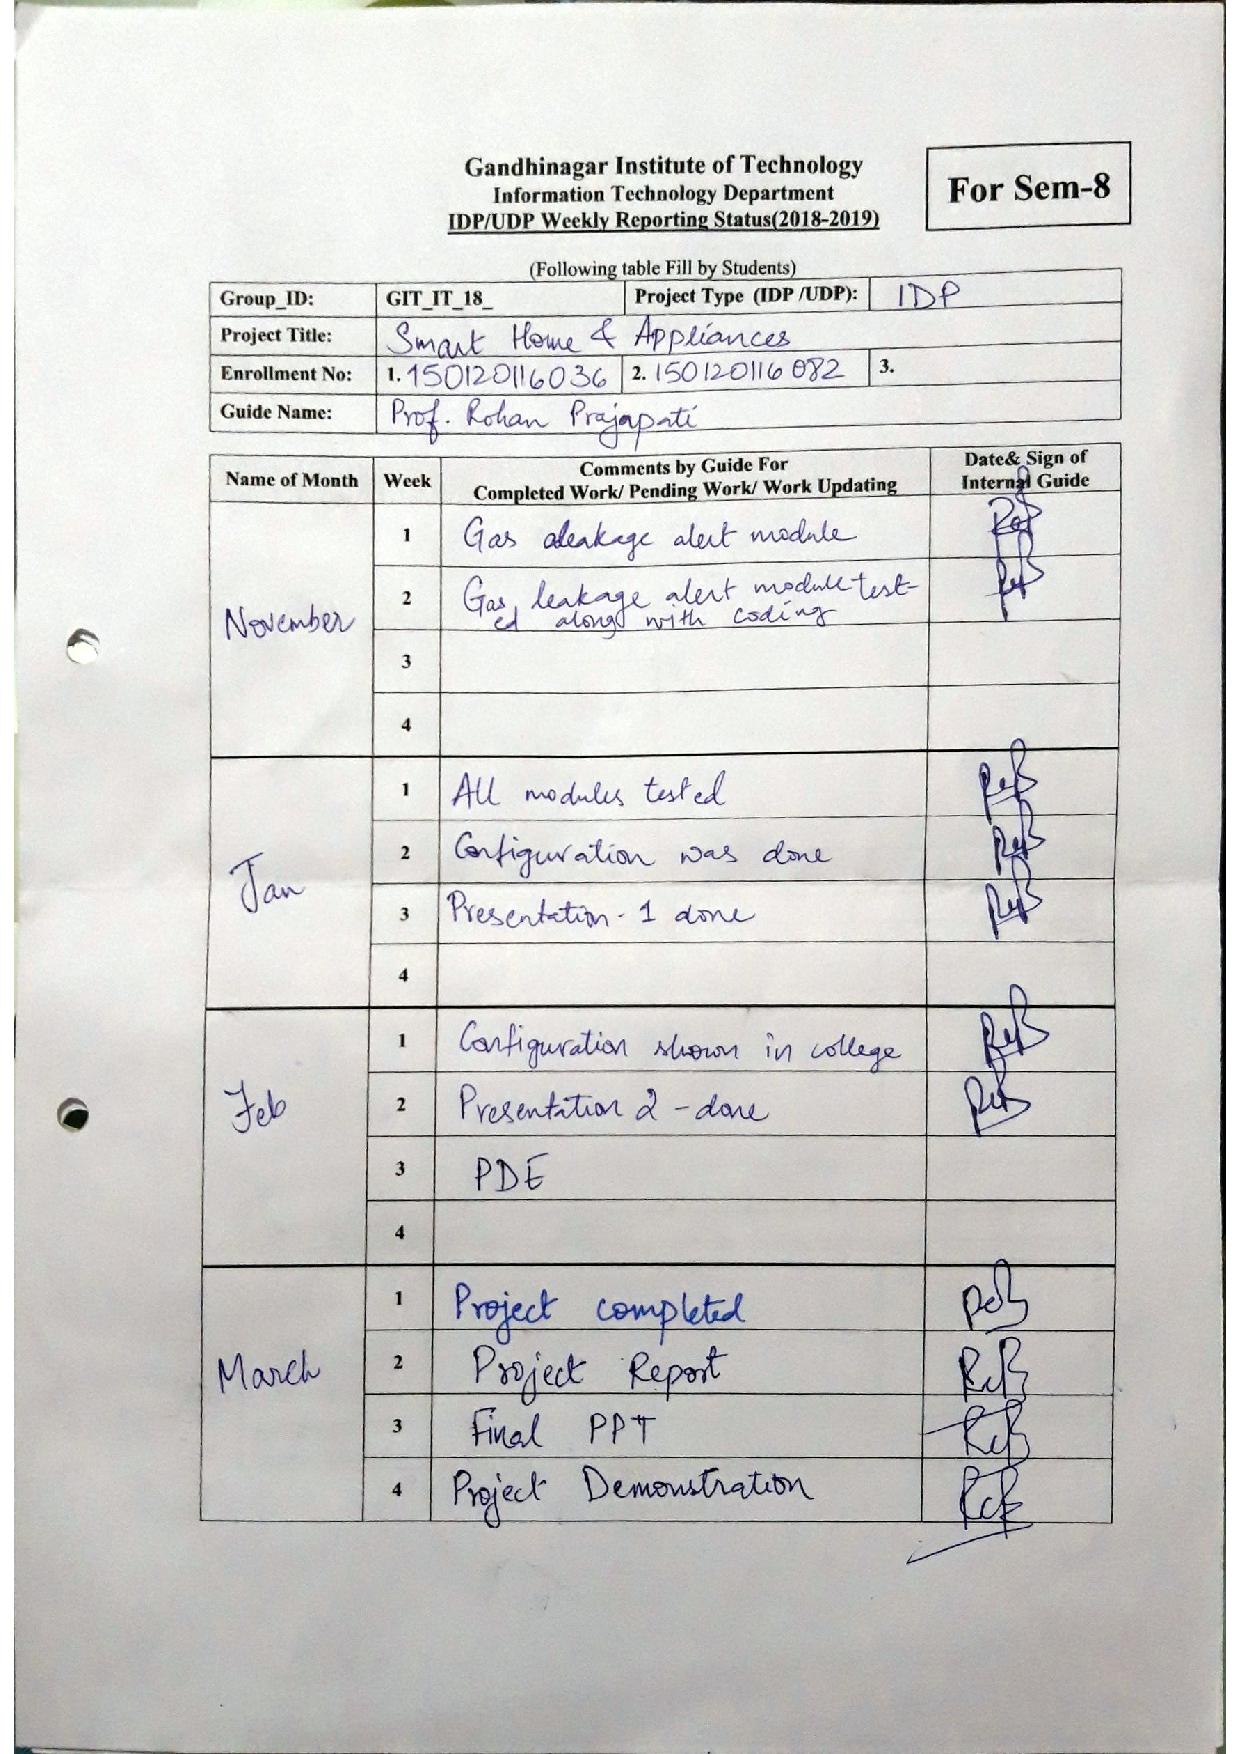 Gandhinagar Institute of Technology
Information Technology Department
IDP/UDP Weekly Reporting Status(2018-2019)
For Sem-8
(Following table Fill by Students)
Group_ID: GIT_IT_18_ Project Type (IDP /UDP): IDP
Project Title: Smart Home & Appliances
Enrollment No: 1. 150120116036 2. 150120116082 3.
Guide Name: Prof. Rohan Prajapati
Name of Month Week Comments by Guide For Completed Work/ Pending Work/ Work Updating Date& Sign of Internal Guide
November
1 Gas aleakage alert module
2 Gas leakage alert module test-
ed along with coding
3
4
Jan
1 All modules tested
2 Configuration was done
3 Presentation - 1 done
4
Feb
1 Configuration shown in college
2 Presentation 2 - done
3 PDE
4
March
1 Project completed
2 Project Report
3 Final PPT
4 Project Demonstration